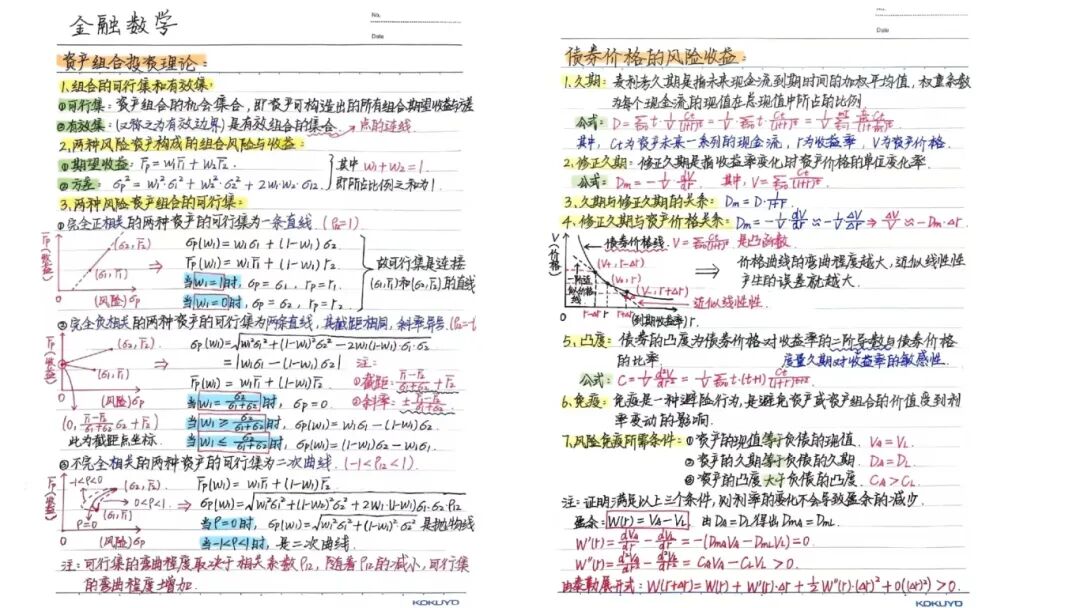 金融数学
No.
Date
资产组合投资理论:
1.组合的可行集和有效集:
①可行集:资产组合的机会集合,即资产可构造出的所有组合期望收益与方差
②有效集:(又称之为有效边界)是有效组合的集合. 点的连线.
2.两种风险资产构成的组合风险与收益:
①期望收益: r̄p=w₁r̄₁+w₂r̄₂. 其中w₁+w₂=1.
②方差: σp²=w₁²σ₁²+w₂²σ₂²+2w₁w₂σ₁₂. 即所占比例之和为1
3.两种风险资产组合的可行集:
①完全正相关的两种资产的可行集为一条直线.
r̄p(收益)
(σ₂,r̄₂)
(σ₁,r̄₁)
0
(风险)σp
⇒
σp(w₁)=w₁σ₁+(1-w₁)σ₂.
r̄p(w₁)=w₁r̄₁+(1-w₁)r̄₂.
当w₁=1时, σp=σ₁, r̄p=r̄₁.
当w₁=0时, σp=σ₂, r̄p=r̄₂.
故可行集是连接
(σ₁,r̄₁)和(σ₂,r̄₂)的直线
②完全负相关的两种资产的可行集为两条直线,其截距相同,斜率异号.
r̄p(收益)
(σ₂,r̄₂)
(σ₁,r̄₁)
0
(风险)σp
⇒
σp(w₁)=√(w₁²σ₁²+(1-w₁)²σ₂²-2w₁(1-w₁)σ₁σ₂)
=|w₁σ₁-(1-w₁)σ₂| 注:
r̄p(w₁)=w₁r̄₁+(1-w₁)r̄₂. ①截距: (r̄₁-r̄₂)/(σ₁+σ₂)·σ₂+r̄₂
当w₁=σ₂/(σ₁+σ₂)时, σp=0. ②斜率: ±(r̄₁-r̄₂)/(σ₁+σ₂)
(0, (r̄₁-r̄₂)/(σ₁+σ₂)·σ₂+r̄₂) 当w₁≥σ₂/(σ₁+σ₂)时, σp(w₁)=w₁σ₁-(1-w₁)σ₂
此为截距点坐标. 当w₁≤σ₂/(σ₁+σ₂)时, σp(w₁)=(1-w₁)σ₂-w₁σ₁.
③不完全相关的两种资产的可行集为二次曲线. (-1<ρ₁₂<1)
r̄p(收益)
-1<ρ<0
(σ₂,r̄₂)
0<ρ<1
(σ₁,r̄₁)
ρ=0
0
(风险)σp
⇒
r̄p(w₁)=w₁r̄₁+(1-w₁)r̄₂
σp(w₁)=√(w₁²σ₁²+(1-w₁)²σ₂²+2w₁(1-w₁)σ₁σ₂ρ₁₂
当ρ=0时, σp(w₁)=√(w₁²σ₁²+(1-w₁)²σ₂²) 是抛物线
当-1<ρ<1时, 是二次曲线.
注:可行集的弯曲程度取决于相关系数ρ₁₂,随着ρ₁₂的减小,可行集
的弯曲程度增加.
KOKUYO
No.
Date
债券价格的风险收益:
1.久期: 麦利考久期是指未来现金流到期时间的加权平均值,权重系数
为每个现金流的现值在总现值中所占的比例.
其中, Ct为资产未来一系列的现金流, r为收益率, V为资产价格.
2.修正久期: 修正久期是指收益率变化时资产价格的单位变化率.
公式: Dm=-1/V·dV/dr. 其中, V=∑Ct/(1+r)^t.
3.久期与修正久期的关系: Dm=D·1/(1+r).
4.修正久期与资产价格关系: Dm=-1/V·dV/dr≈-1/V·ΔV/Δr⇒ΔV/V≈-Dm·Δr
V(价格)
债券价格线. V=∑Ct/(1+r)^t 是凸函数.
(V+,r-Δr)
(V₀,r)
(V-,r+Δr)
近似线性性.
r-Δr r r+Δr
0
(到期收益率)r
⇒
价格曲线的弯曲程度越大,近似线性性
产生的误差就越大
5.凸度: 债券的凸度为债券价格对收益率的二阶导数与债券价格
的比率. 度量久期对收益率的敏感性.
公式: C=1/V·d²V/dr²=1/V∑t·(t+1)Ct/(1+r)^(t+2)
6.免疫: 免疫是一种避险行为,是避免资产或资产组合的价值受到利
率变动的影响.
7.风险免疫所需条件: ①资产的现值等于负债的现值. VA=VL.
②资产的久期等于负债的久期. DA=DL.
③资产的凸度大于负债的凸度. CA>CL.
注:证明:满足以上三个条件,则利率的变化不会导致盈余的减少.
盈余: W(r)=VA-VL. 由DA=DL得出DmA=DmL.
W'(r)=dVA/dr-dVL/dr=-(DmAVA-DmLVL)=0.
W''(r)=d²VA/dr²-d²VL/dr²=CAVA-CLVL>0.
由泰勒展开式: W(r+Δr)=W(r)+W'(r)·Δr+½W''(r)·(Δr)²+o((Δr)²)>0.
KOKUYO